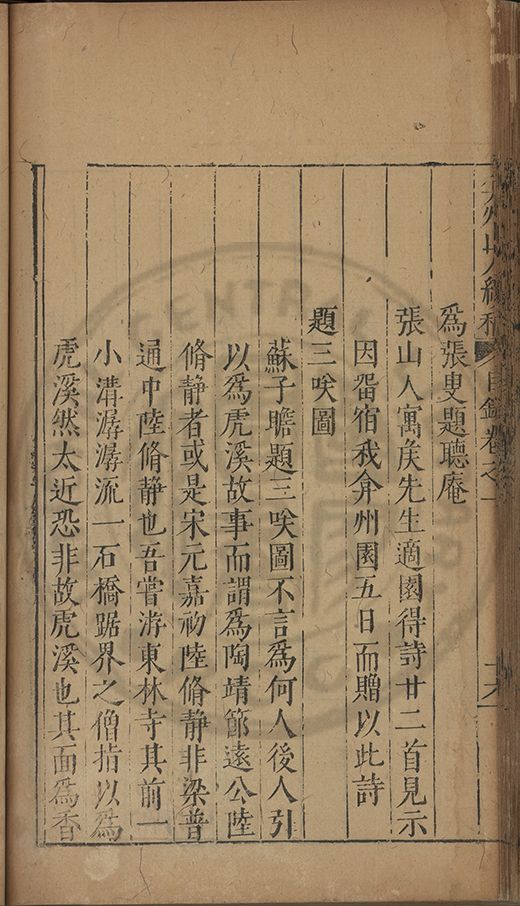 弇州山人續稿 目錄卷之一
爲張叟題聽庵
張山人寓矦先生適園得詩廿二首見示
因畱宿我弇州園五日而贈以此詩
題三咲圖
蘇子瞻題三咲圖不言爲何人後人引
以爲虎溪故事而謂爲陶靖節遠公陸
脩静者或是宋元嘉初陸脩静非梁普
通中陸脩静也吾嘗游東林寺其前一
小溝潺潺流一石橋踞界之僧指以爲
虎溪然太近恐非故虎溪也其面爲香